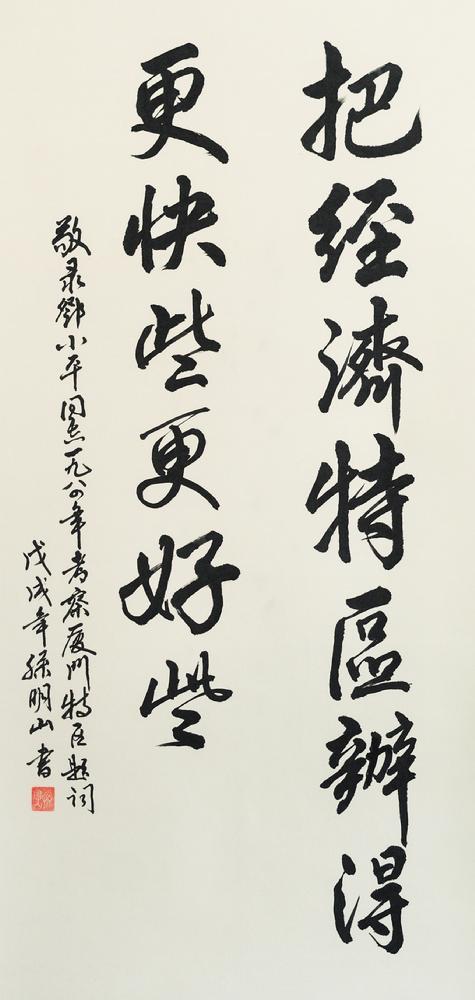 把經濟特區辦得
更快些更好些
敬录鄧小平同志一九八四年考察厦门特区题词
戊戌年孫明山書